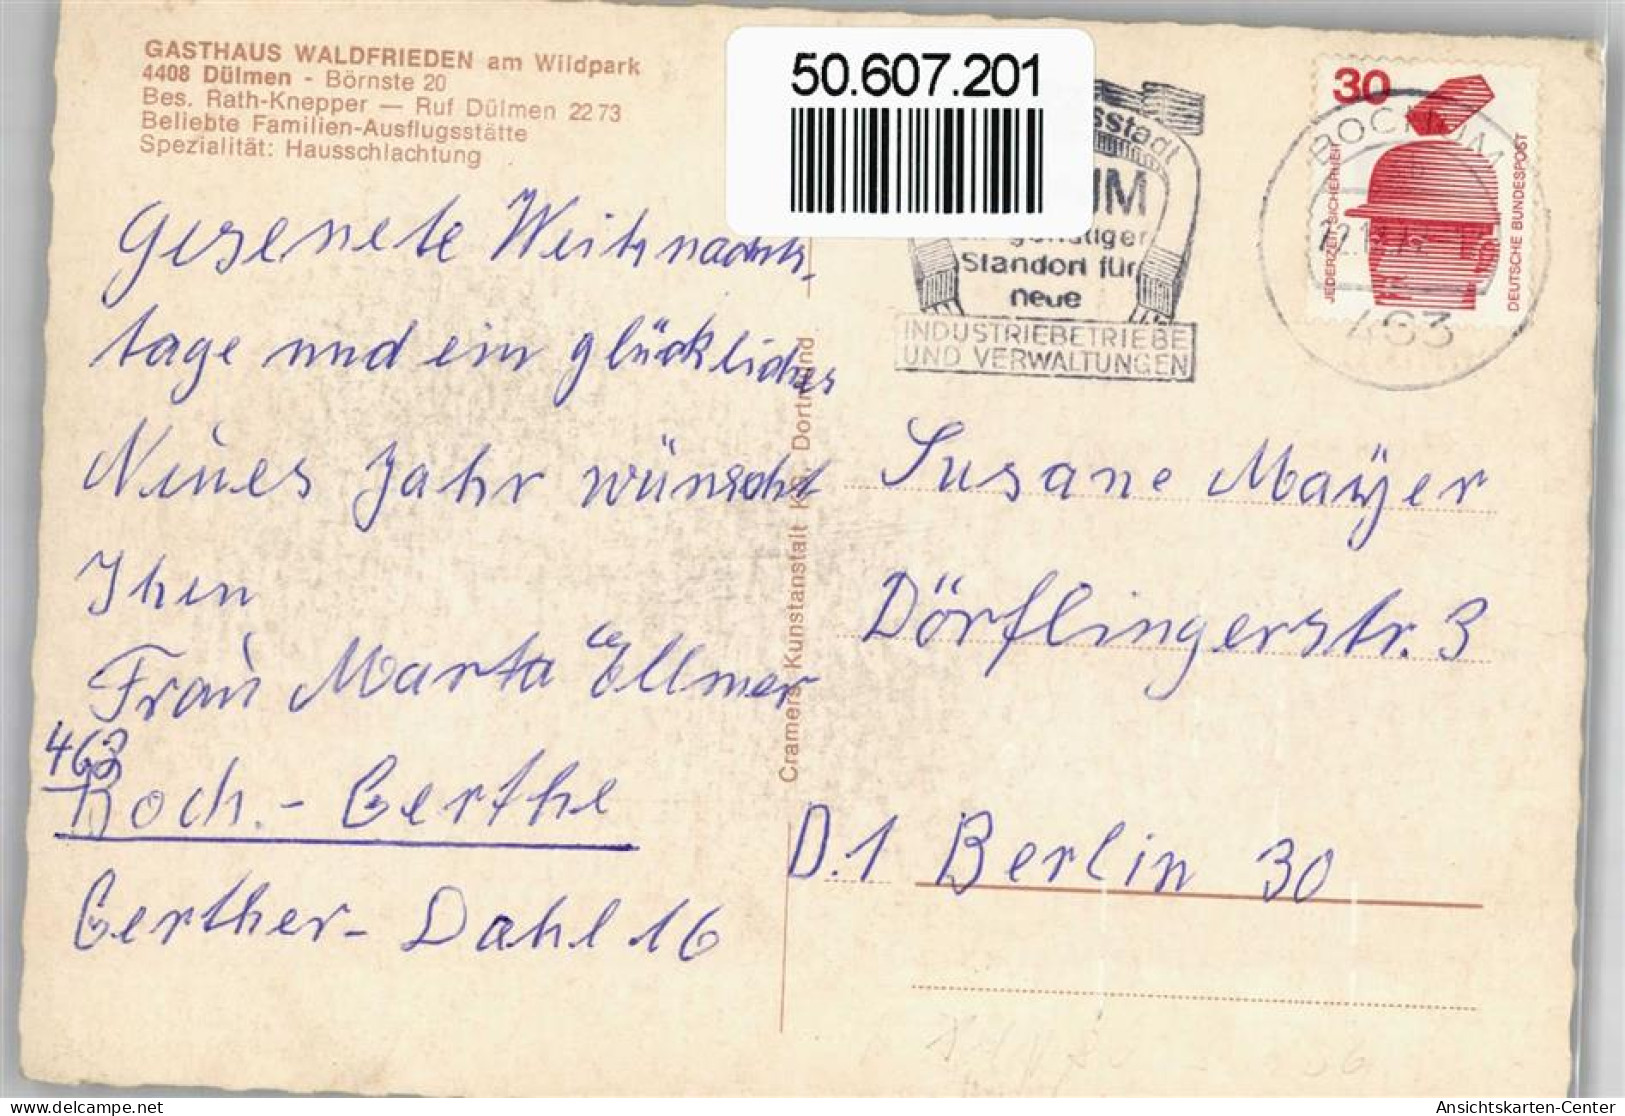 GASTHAUS WALDFRIEDEN am Wildpark
4408 Dülmen - Börnste 20
Bes. Rath-Knepper — Ruf Dülmen 22 73
Beliebte Familien-Ausflugsstätte
Spezialität: Hausschlachtung
Gesenete Weihnachts-
tage und ein glückliches
Neues Jahr wünscht
Ihen
Frau Marta Ellmer
463
Boch.- Gerthe
Gerther- Dahl 16
Cramers Kunstanstalt KG. Dortmund
50.607.201
sstadt
UM
günstiger
Standort für
neue
INDUSTRIEBETRIEBE
UND VERWALTUNGEN
30
JEDERZEIT SICHERHEIT
DEUTSCHE BUNDESPOST
BOCHUM
463
Susane Mayer
Dörflingerstr. 3
D.1 Berlin 30
Ansichtskarten-Center